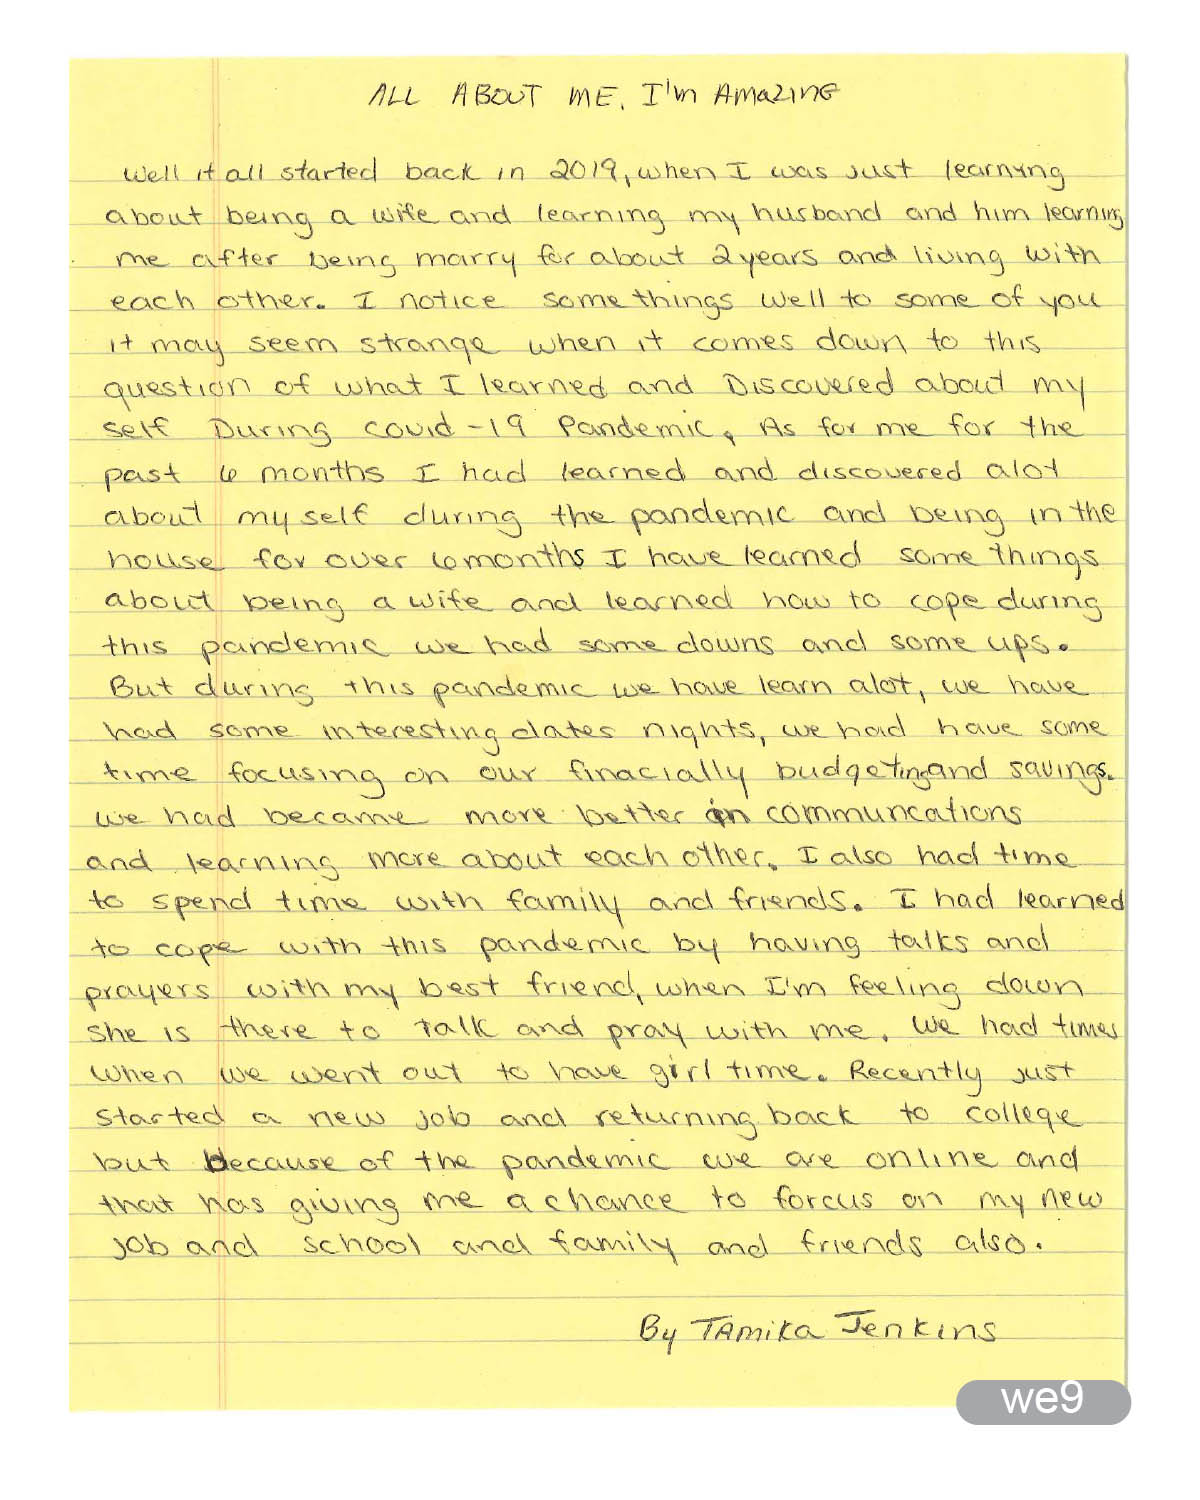 ALL ABOUT ME. I'm AmaZING
Well it all started back in 2019, when I was just learning
about being a wife and learning my husband and him learning
me after being marry for about 2 years and living with
each other. I notice some things well to some of you
it may seem strange when it comes down to this
question of what I learned and Discovered about my
self During covid-19 Pandemic. As for me for the
past 6 months I had learned and discovered alot
about my self during the pandemic and being in the
house for over 6 months I have learned some things
about being a wife and learned how to cope during
this pandemic we had some downs and some ups.
But during this pandemic we have learn alot, we have
had some interesting dates nights, we had have some
time focusing on our finacially budgeting and savings.
we had became more better in communcations
and learning more about each other. I also had time
to spend time with family and friends. I had learned
to cope with this pandemic by having talks and
prayers with my best friend, when I'm feeling down
she is there to talk and pray with me. We had times
when we went out to have girl time. Recently just
started a new job and returning back to college
but because of the pandemic we are online and
that has giving me a chance to forcus on my new
job and school and family and friends also.
By TAmika Jenkins
we9